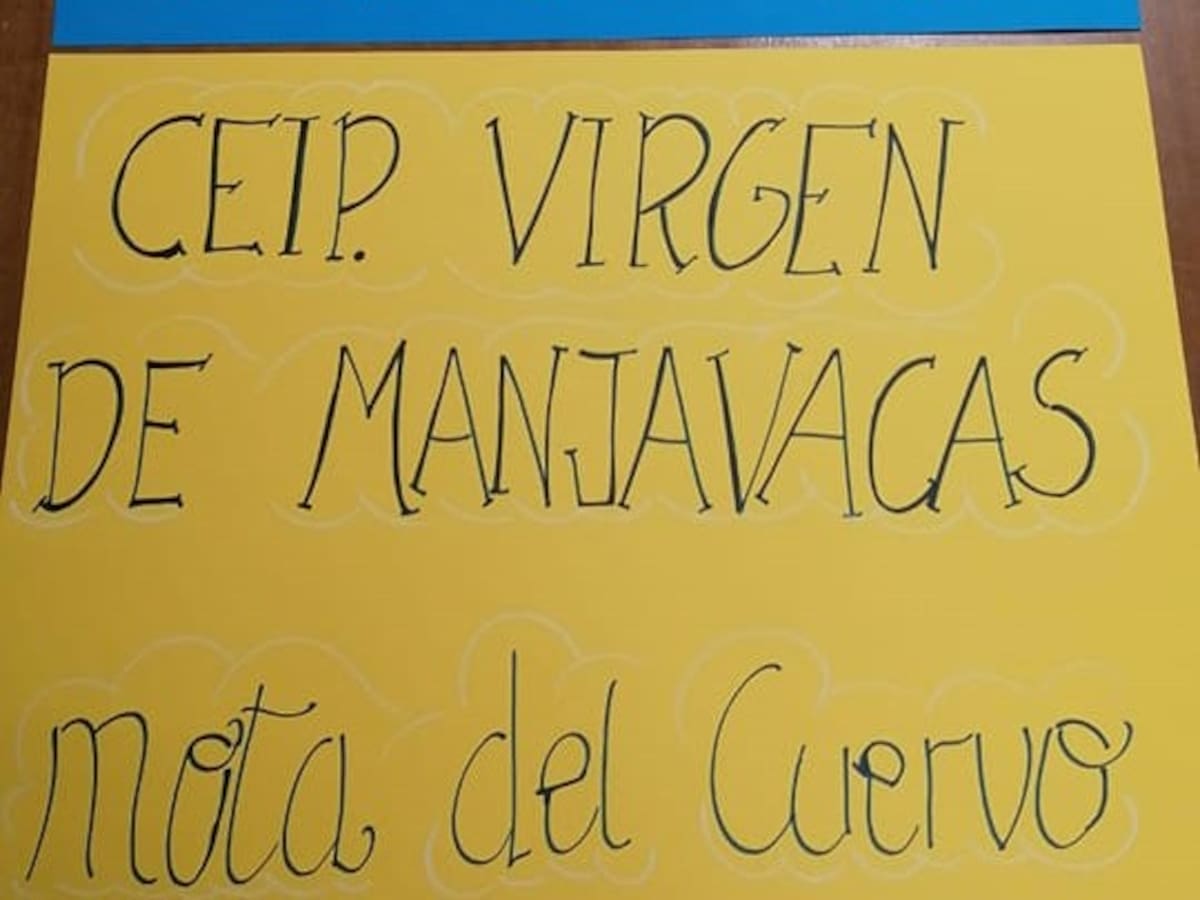 CEIP. VIRGEN
DE MANJAVACAS
Mota del Cuervo